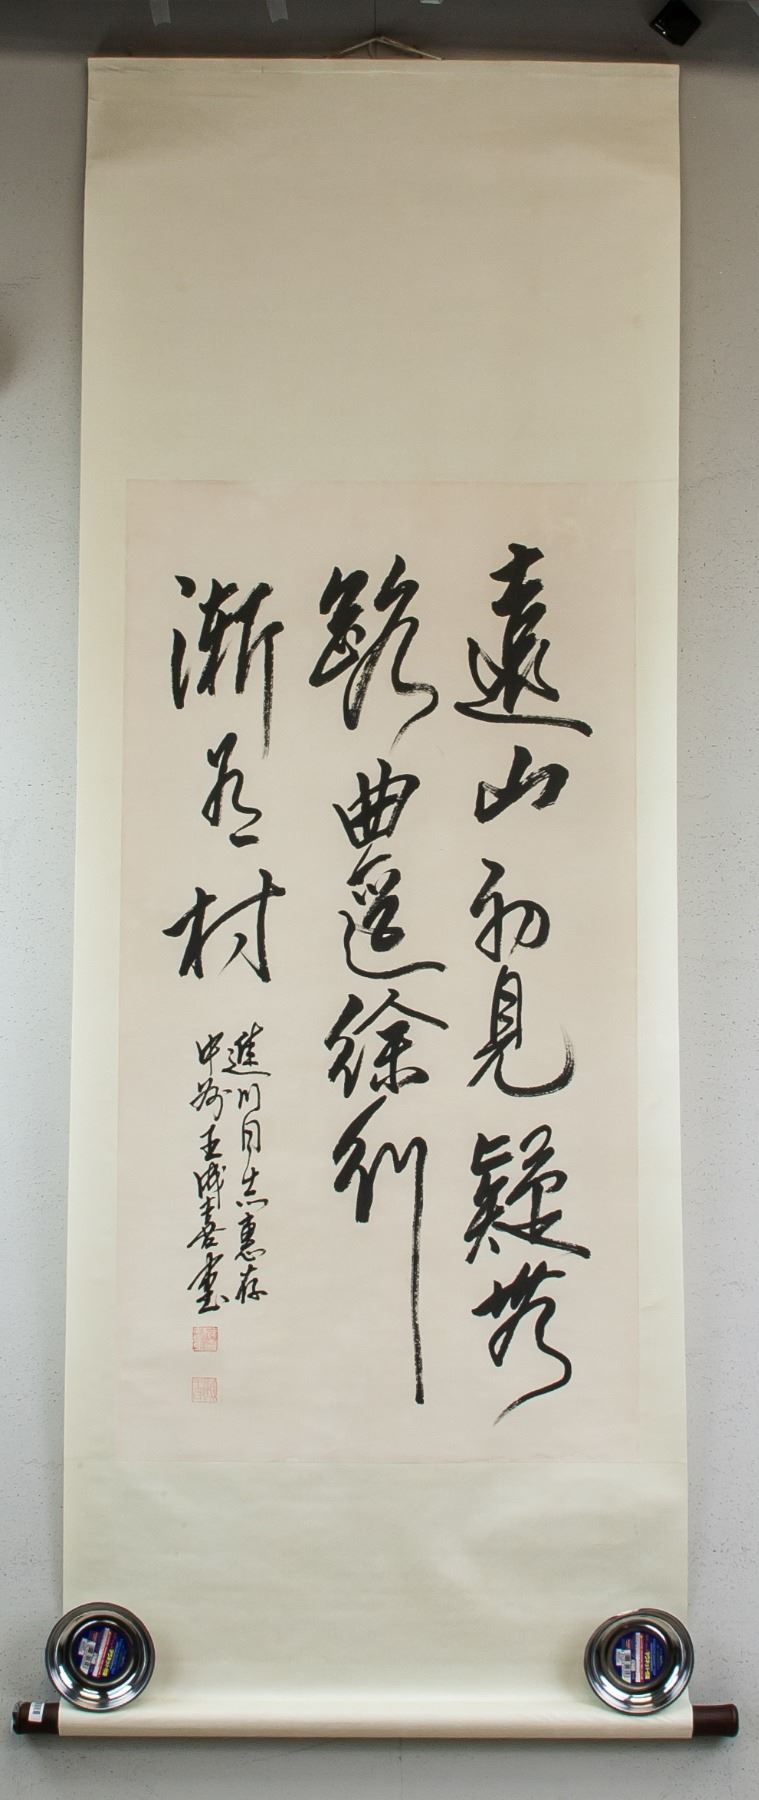 遠山初見疑無
路曲徑徐行
漸有村
進川同志惠存
中州王成喜書